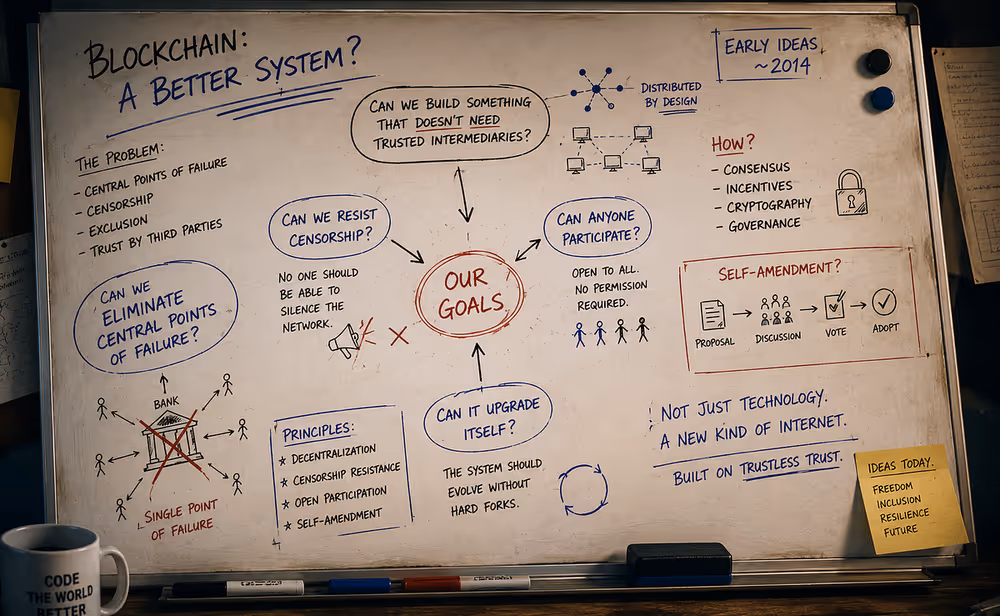 BLOCKCHAIN:
A BETTER SYSTEM?
EARLY IDEAS
~2014
CAN WE BUILD SOMETHING
THAT DOESN'T NEED
TRUSTED INTERMEDIARIES?
DISTRIBUTED
BY DESIGN
THE PROBLEM:
- CENTRAL POINTS OF FAILURE
- CENSORSHIP
- EXCLUSION
- TRUST BY THIRD PARTIES
HOW?
- CONSENSUS
- INCENTIVES
- CRYPTOGRAPHY
- GOVERNANCE
CAN WE RESIST
CENSORSHIP?
NO ONE SHOULD
BE ABLE TO
SILENCE THE
NETWORK.
OUR
GOALS
CAN ANYONE
PARTICIPATE?
OPEN TO ALL.
NO PERMISSION
REQUIRED.
CAN WE
ELIMINATE
CENTRAL POINTS
OF FAILURE?
SELF-AMENDMENT?
PROPOSAL
DISCUSSION
VOTE
ADOPT
BANK
SINGLE POINT
OF FAILURE
PRINCIPLES:
★ DECENTRALIZATION
★ CENSORSHIP RESISTANCE
★ OPEN PARTICIPATION
★ SELF-AMENDMENT
CAN IT UPGRADE
ITSELF?
THE SYSTEM SHOULD
EVOLVE WITHOUT
HARD FORKS.
NOT JUST TECHNOLOGY.
A NEW KIND OF INTERNET.
BUILT ON TRUSTLESS TRUST.
IDEAS TODAY.
FREEDOM
INCLUSION
RESILIENCE
FUTURE
CODE
THE WORLD
BETTER